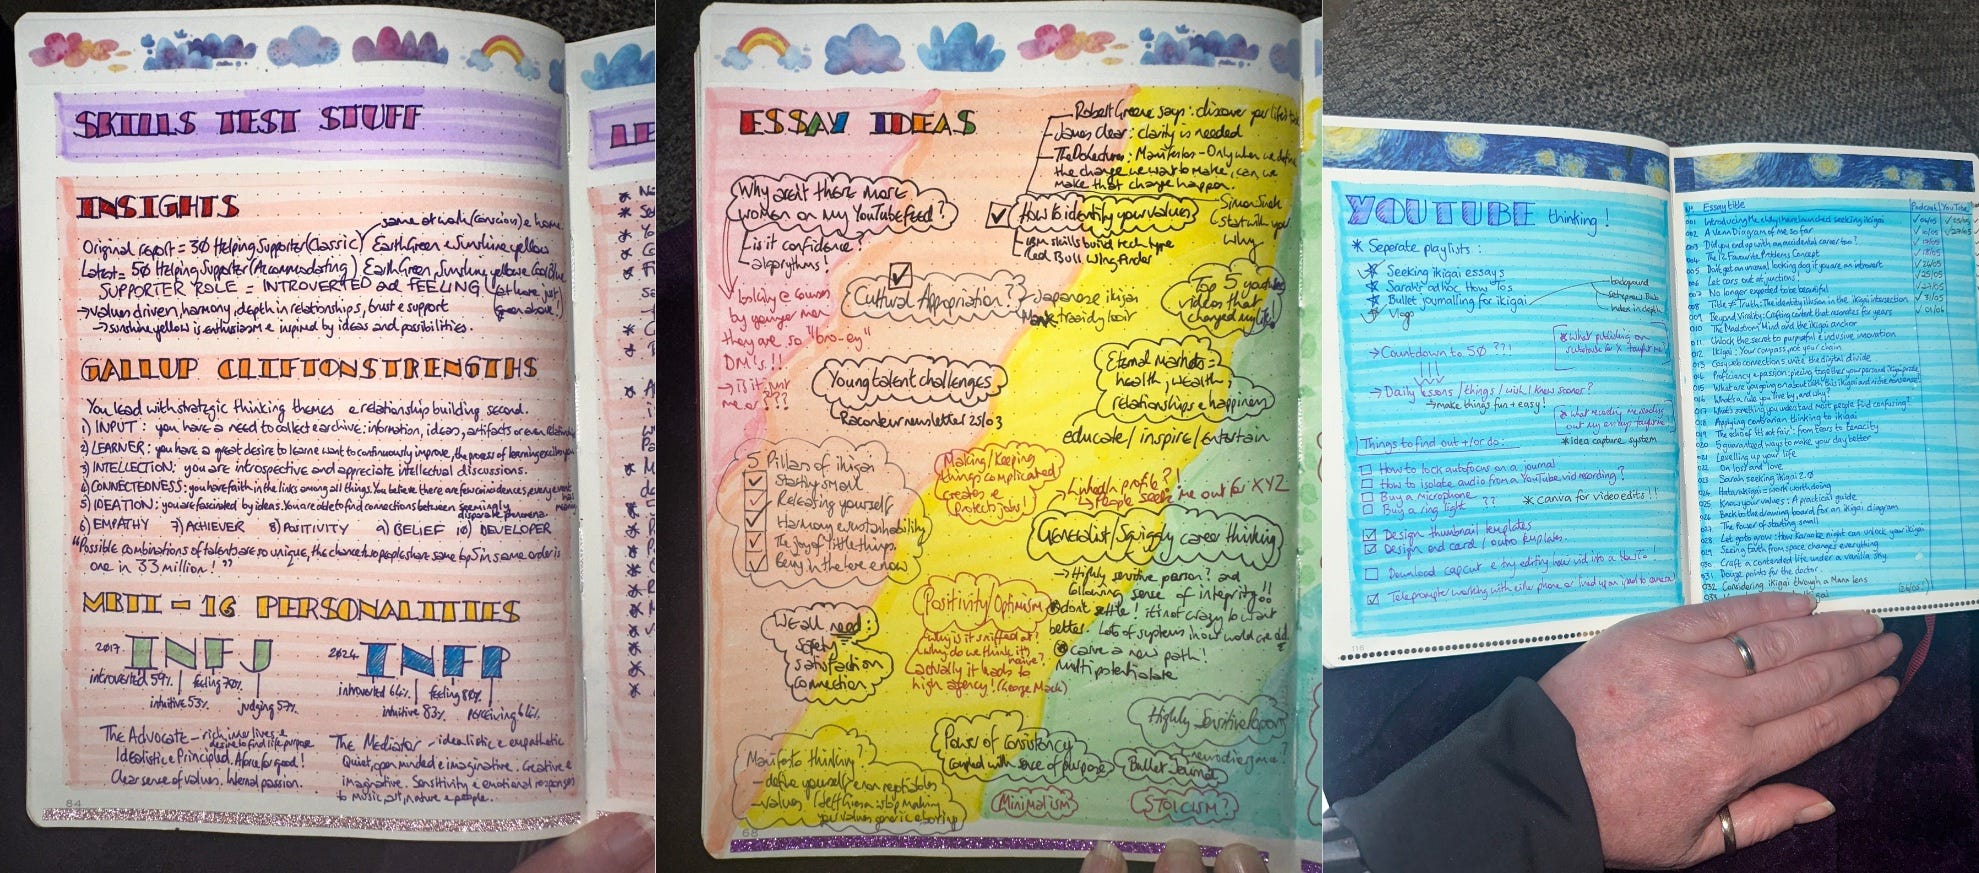 SKILLS TEST STUFF
INSIGHTS
same at work (conscious) e home
Original report = 30 Helping Supporter (Classic) Earth Green e Sunshine yellow
Latest = 50 Helping Supporter (Accommodating) Earth Green, Sunshine yellow e Cool Blue
SUPPORTER ROLE = INTROVERTED and FEELING
→ values driven, harmony, depth in relationships, trust e support
→ sunshine yellow is enthusiasm e inspired by ideas and possibilities.
GALLUP CLIFTONSTRENGTHS
You lead with strategic thinking themes e relationship building second.
1) INPUT: you have a need to collect e archive: information, ideas, artifacts or even relationships
2) LEARNER: you have a great desire to learn e want to continuously improve, the process of learning excites you
3) INTELLECTION: you are introspective and appreciate intellectual discussions.
4) CONNECTEDNESS: you have faith in the links among all things. You believe there are few coincidences, every event has meaning
5) IDEATION: you are fascinated by ideas. You are able to find connections between seemingly disparate phenomena.
6) EMPATHY 7) ACHIEVER 8) POSITIVITY 9) BELIEF 10) DEVELOPER
"Possible combinations of talents are so unique, the chance two people share same top 5 in same order is
one in 33 million!"
MBTI - 16 PERSONALITIES
2017 INFJ
introverted 59%
intuitive 53%
feeling 70%
judging 57%
The Advocate - rich inner lives e
desire to find life purpose
Idealistic e Principled. A force for good!
Clear sense of values. Internal passion.
2024 INFP
introverted 66%
intuitive 83%
feeling 80%
perceiving 64%
The Mediator - idealistic e empathetic
Quiet, open minded e imaginative. Creative e
imaginative. Sensitivity e emotional responses
to music, art, nature e people.
84
ESSAY IDEAS
Robert Greene says: discover your life's task
James Clear: clarity is needed
The Do Lectures: Manifestos - Only when we define
the change we want to make, can we
make that change happen.
Simon Sinek
Start with your
Why
How to identify your values
IBM skills build tech type
Red Bull Wingfinder
Why aren't there more
women on my YouTube feed?
Is it confidence?
algorithms!
looking @ courses
by younger men
they are so "bro-ey"
DM's!!!
→ is it just
me or???
Cultural Appropriation?
Japanese ikigai
Top 5 youtube
videos that
changed my life!
Young talent challenges
Raconteur newsletter 25/03
Eternal markets =
health, wealth,
relationships e happiness
educate/inspire/entertain
5 Pillars of ikigai
Starting small
Releasing yourself
Harmony e sustainability
The joy of little things
Being in the here e now
Making/Keeping
things complicated
creates e
protects jobs!
LinkedIn profile?!
↳ People seek me out for XYZ
Generalist/Squiggly career thinking
→ Highly sensitive person? and
following sense of integrity!!
don't settle! it's not crazy to want
better. Lots of systems in our world are old.
carve a new path!
multipotentialite
Positivity/Optimism
Why is it sniffed at?
Why do we think it's
naive?
actually it leads to
high agency! (George Mack)
We all need:
safety
satisfaction
connection
Highly Sensitive Person
neurodivergence?
Power of consistency
coupled with sense of purpose
Bullet Journal
Manifesto thinking?
- define yourself e non negotiables
- values
Minimalism?
STOICISM?
68
YOUTUBE thinking!
* Seperate playlists:
Seeking ikigai essays
Sarah's adhoc How Tos
Bullet journalling for ikigai
Vlogs
background
index in depth
→ Countdown to 50??!
* What publishing on
substack for X taught me!
→ Daily lessons/things I wish I knew sooner?
→ make things fun + easy!
* what recording me reading
out my essays taught me
* Idea capture system
Things to find out +/or do:
How to lock autofocus on a journal
How to isolate audio from a YouTube vid recording?
Buy a microphone
Buy a ring light ??
* Canva for video edits!!
Design thumbnail templates
Design end card/outro templates.
Download capcut e try editing
116
Nº Essay title Podcast YouTube
001 Introducing Me
002 A Venn Diagram of me so far
003 Did you end up with an accidental career too?
004 The 12 Favourite Problems Concept
005 Don't get an unusual looking dog if you are an introvert
006 Let cars out at junctions!
007 No longer expected to be beautiful
008 Title ≠ Truth: The identity illusion in the ikigai intersection
009 Beyond Virality: Crafting content that resonates for years
010 The Maelstrom Mind and the ikigai anchor
011 Unlock the secret to purposeful e inclusive innovation
012 Ikigai: Your compass, not your chain
013 Cosy web connections unite the digital divide
014 Proficiency e passion: piecing together your personal ikigai puzzle
015 What are you going on about with this ikigai and niche nonsense?
016 What's a rule you live by, and why?
017 What's something you understand most people find confusing?
018 Applying contrarian thinking to ikigai
019 The echo of 'it's not fair': from tears to tenacity
020 5 guaranteed ways to make your day better
021 Levelling up your life
022 On loss and love
023 Sarah seeking 2.0
024 Hatarakigai = work worth doing
025 Know your values: A practical guide
026 Back to the drawing board for an ikigai diagram
027 The Power of starting small
028 Let go to grow: How Karaoke night can unlock your ikigai
029 Seeing Earth from space changes everything
030 Craft a contented life under a vanilla sky
031 Dougie points for the doctor
032 Considering ikigai through a Manx lens
033